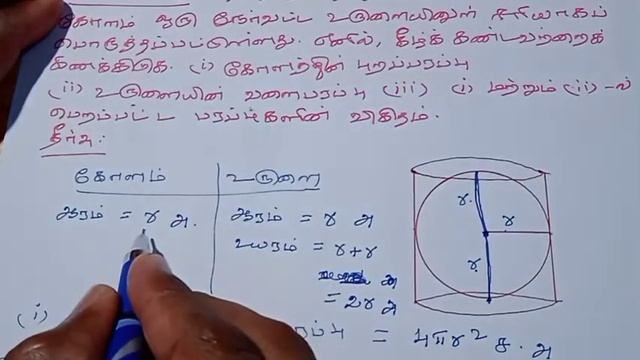 கோளம் ஒரு நேர்வட்ட உருளையினுள் சரியாகப்
பொருத்தப்பட்டுள்ளது. எனில், கீழ்க் கண்டவற்றைக்
கணக்கிடுக. (i) கோளத்தின் புறப்பரப்பு
(ii) உருளையின் வளைபரப்பு (iii) (i) மற்றும் (ii)-ல்
பெறப்பட்ட பரப்புகளின் விகிதம்.
தீர்வு:
கோளம் உருளை
ஆரம் = r அ. ஆரம் = r அ
உயரம் = r+r
அ
= 2r அ
r r
r
(i) ரப்பு = 4πr² ச. அ